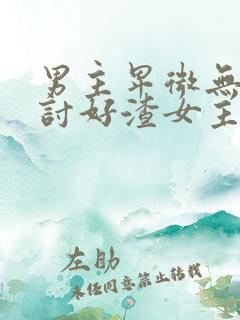 男主卑微無
討好渣女主
左助
未经同意禁止转载